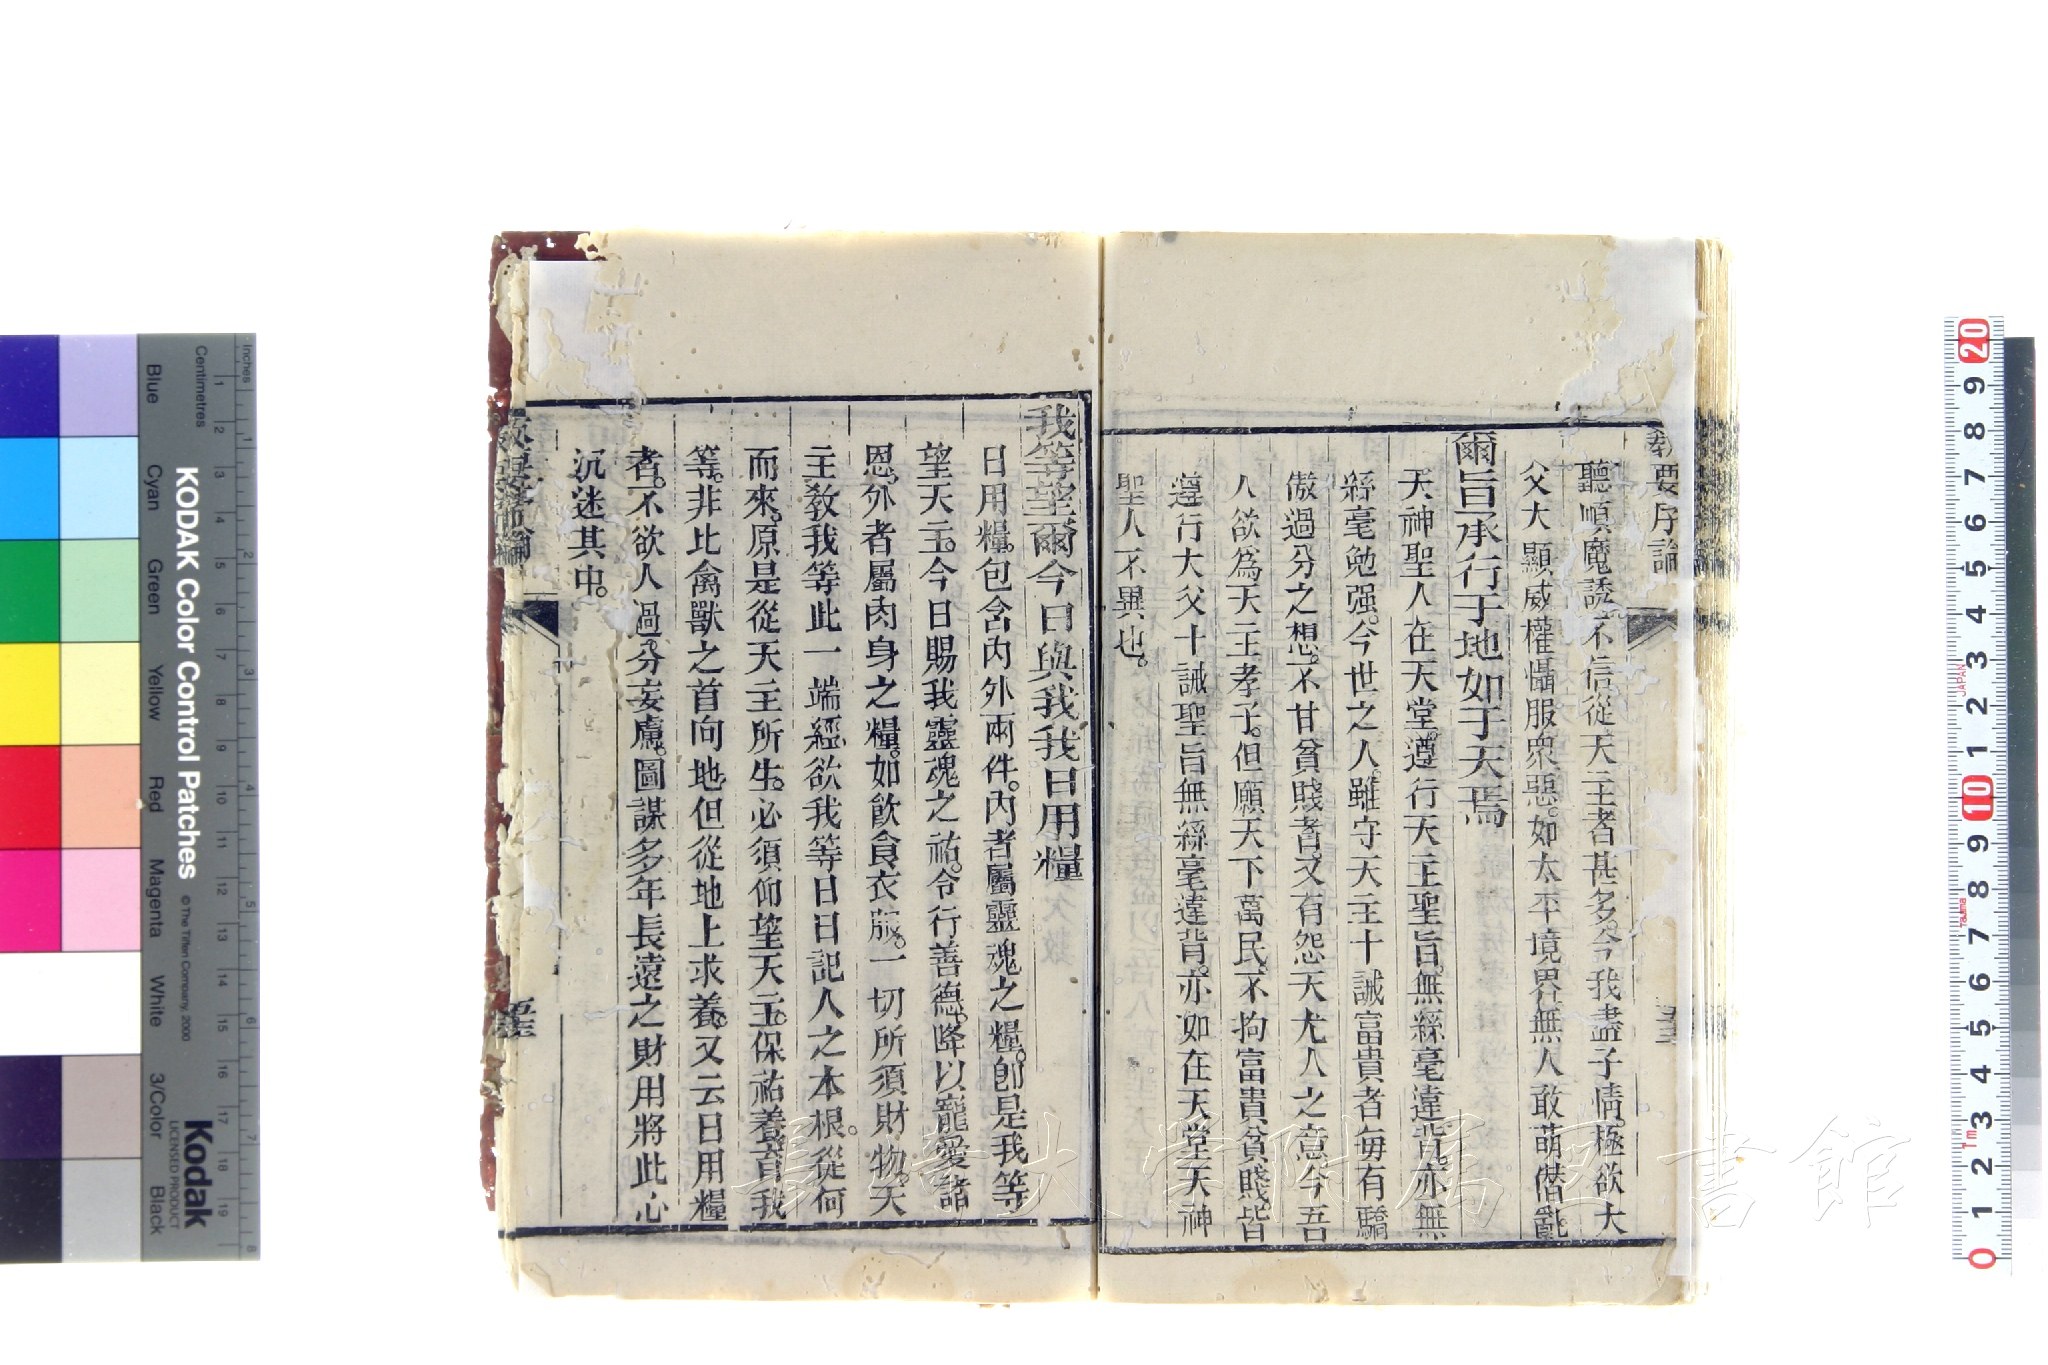 教要序論
聽順魔誘。不信從天主者甚多。今我盡子情。極欲大
父大顯威權懾服衆惡。如太平境界無人敢萌僭亂
爾旨承行于地如于天焉
天神聖人在天堂。遵行天主聖旨。無絲毫違背。亦無
絲毫勉强。今世之人。雖守天主十誡。富貴者每有驕
傲過分之想。不甘貧賤者。又有怨天尤人之意。今吾
人欲為天主孝子。但願天下萬民。不拘富貴貧賤。皆
遵行大父十誡聖旨無絲毫違背。亦如在天堂天神
聖人不異也。
我等望爾今日與我我日用糧
日用糧。包含內外兩件。內者屬靈魂之糧。卽是我等
望天主。今日賜我靈魂之祐。令行善德。降以寵愛諸
恩。外者屬肉身之糧。如飮食衣服。一切所須財物。天
主敎我等此一端經。欲我等日日記人之本根。從何
而來。原是從天主所生。必須仰望天主。保祐養育我
等。非比禽獸之首向地。但從地上求養。又云日用糧
者。不欲人過分妄慮。圖謀多年長遠之財用將此心
沉迷其中。
教要序論
KODAK Color Control Patches
© The Tiffen Company, 2000
Kodak
LICENSED PRODUCT
Inches
Centimetres
Blue
Cyan
Green
Yellow
Red
Magenta
White
3/Color
Black
長崎大学附属図書館
JAPAN
Tajima
Tm